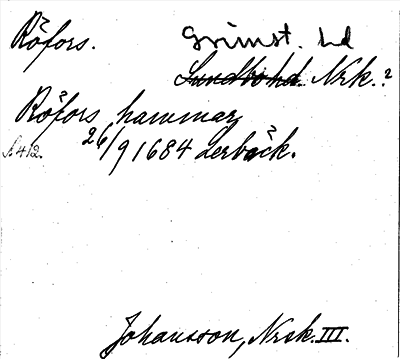 Röfors. Grimst. hd
Sundbo hd. Nrk.?
Röfors hammar
s. 412. 26/9 1684 Lerbäck.
Johansson, Nrsk. III.